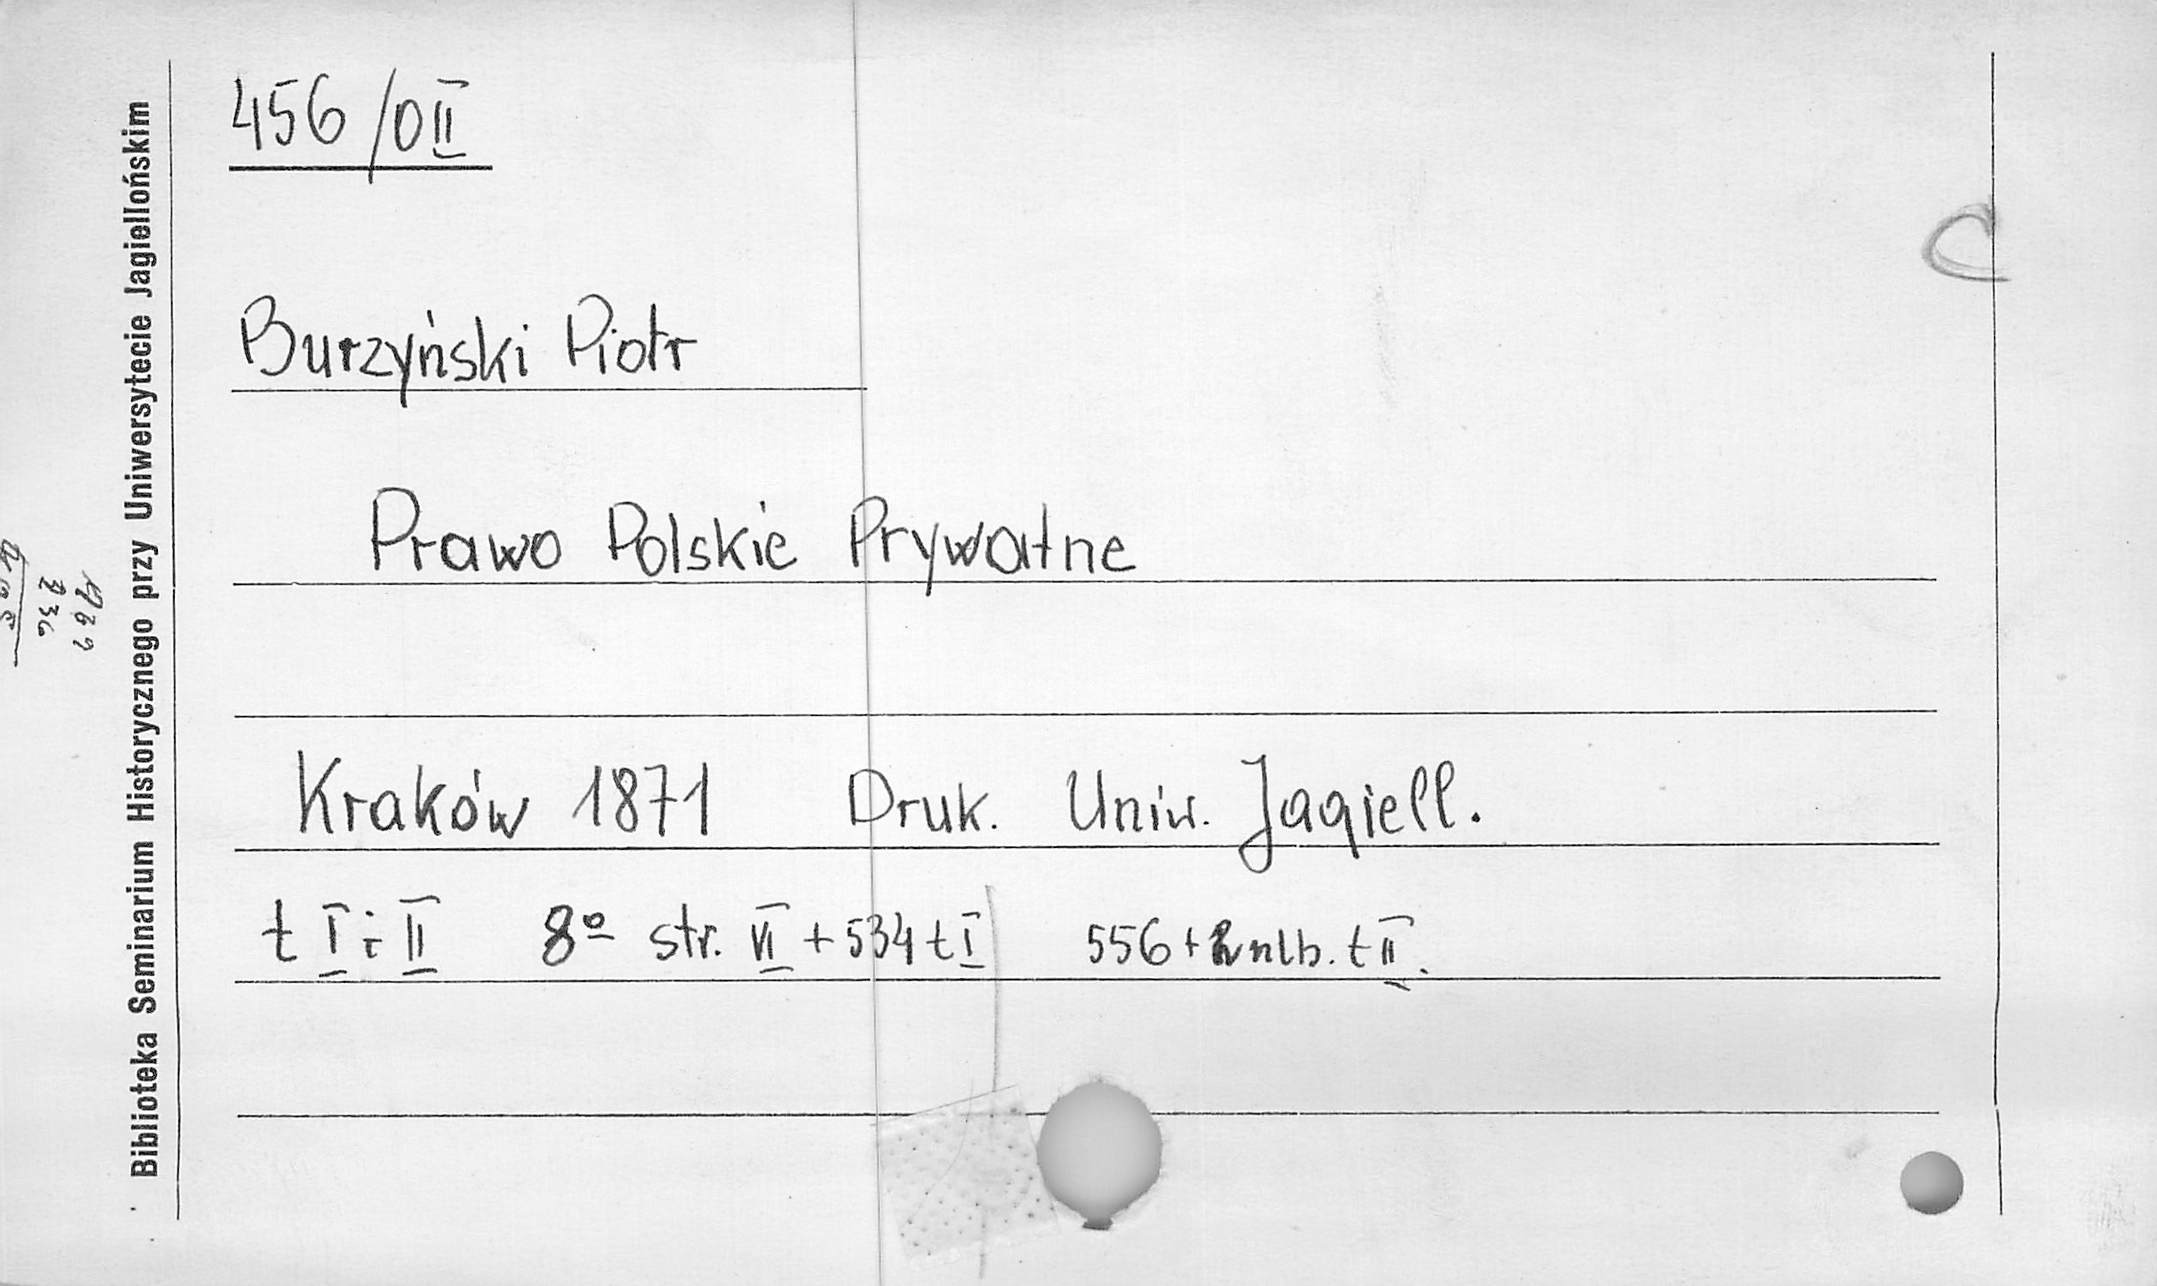 456/0II
Burzyński Piotr
Prawo Polskie Prywatne
Kraków 1871 Druk. Uniw. Jagiell.
t I i II 8º str. VI + 534 t I 556 + 2 nlb. t II.
Biblioteka Seminarium Historycznego przy Uniwersytecie Jagiellońskim
C
236